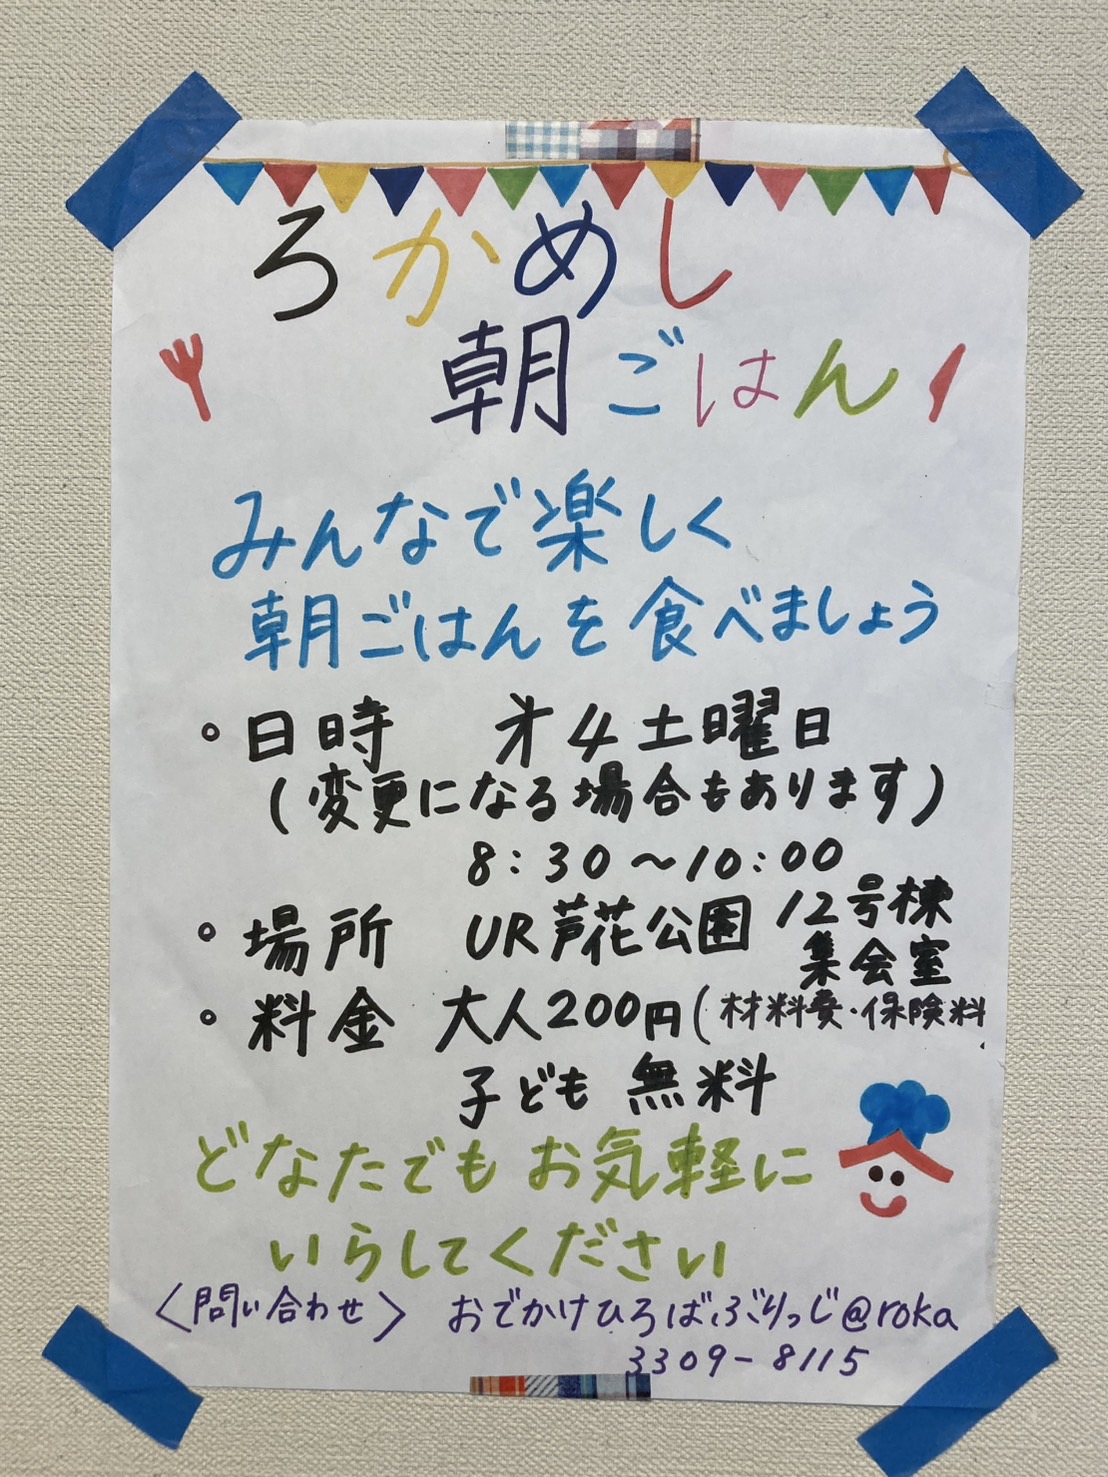 ろかめし
朝ごはん
みんなで楽しく
朝ごはんを食べましょう
。日時 才4土曜日
(変更になる場合もあります)
8:30～10:00
。場所 UR芦花公園 12号棟
集会室
。料金 大人200円(材料費・保険料
子ども 無料
どなたでもお気軽に
いらしてください
〈問い合わせ〉 おでかけひろばぶりっじ@roka
3309-8115